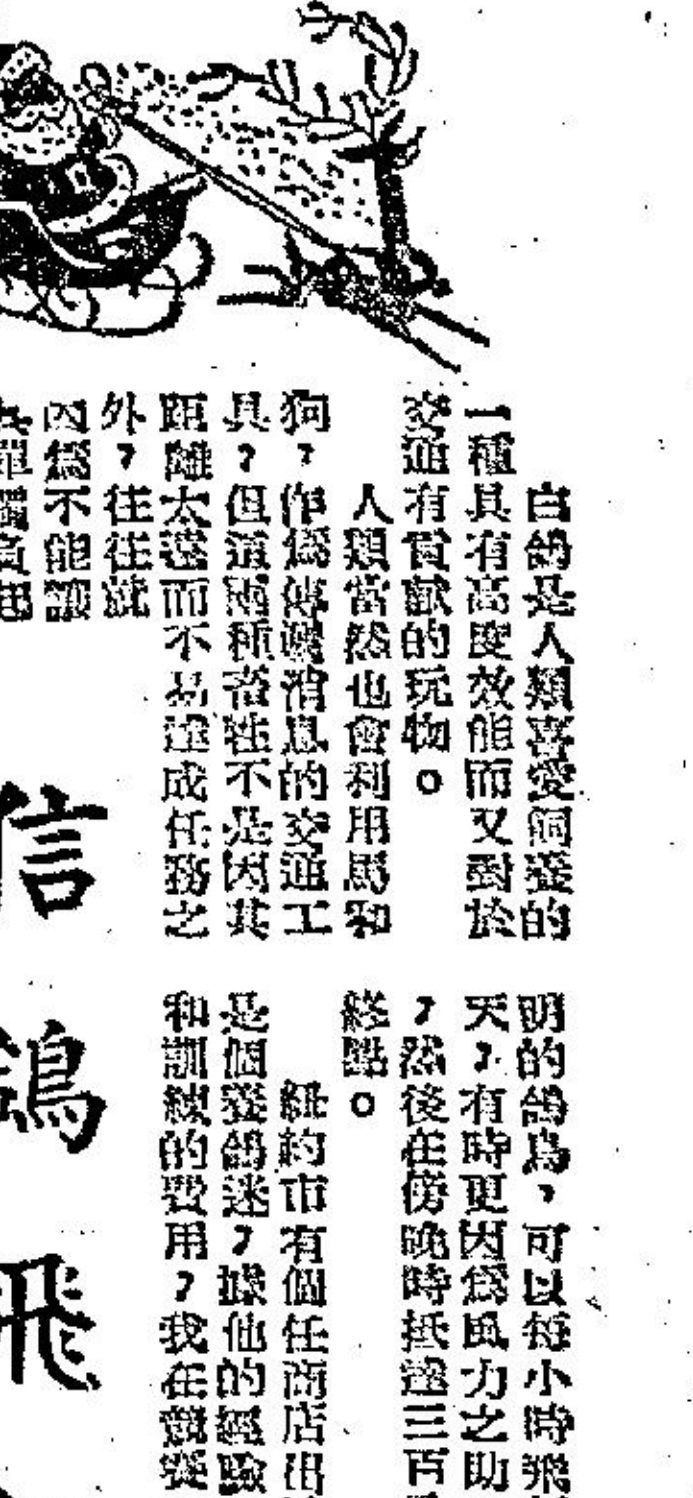 白鴿是人類喜愛飼養的
一種具有高度效能而又對於
交通有貢獻的玩物。
人類當然也會利用馬和
狗，作爲傳遞消息的交通工
具，但這兩種畜牲不是因其
距離太遠而不易達成任務之
外，往往就
因爲不能讓
單獨負起
信鴿飛
明的鴿鳥，可以每小時飛
天，有時更因爲風力之助
，然後在傍晚時抵達三百
終點。
紐約市有個任商店出
是個養鴿迷，據他的經驗
和訓練的費用，我在競賽